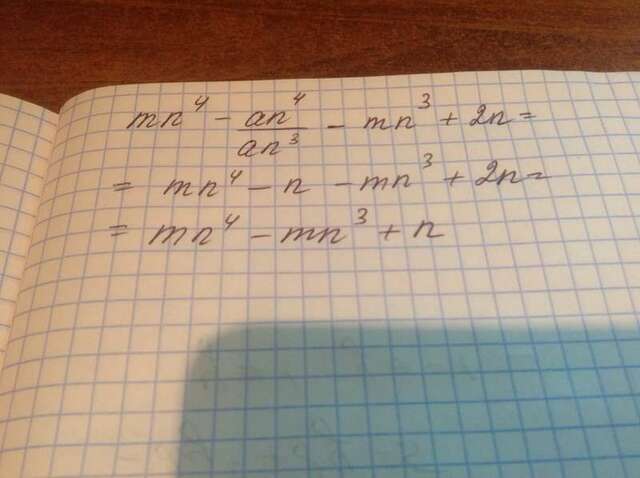 mn⁴ - an⁴/an³ - mn³ + 2n =
= mn⁴ - n - mn³ + 2n =
= mn⁴ - mn³ + n